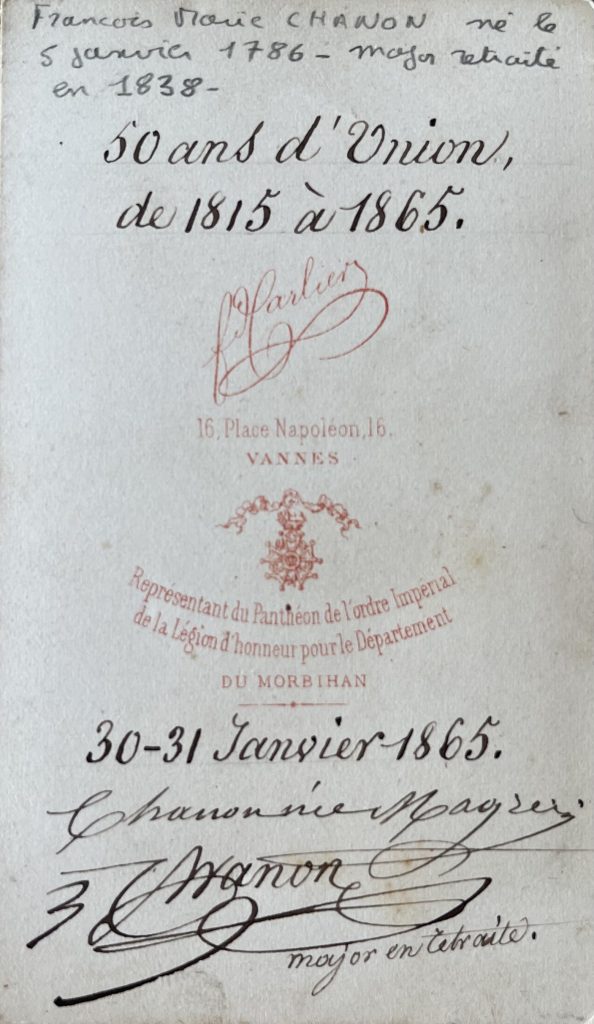 François Marie CHANON né le
5 janvier 1786 - major retraité
en 1838 -
50 ans d'Union,
de 1815 à 1865.
f. Carlier
16, Place Napoléon, 16.
VANNES
Représentant du Panthéon de l'ordre Impérial
de la Légion d'honneur pour le Département
DU MORBIHAN
30-31 Janvier 1865.
Chanon née
Chanon
major en retraite.